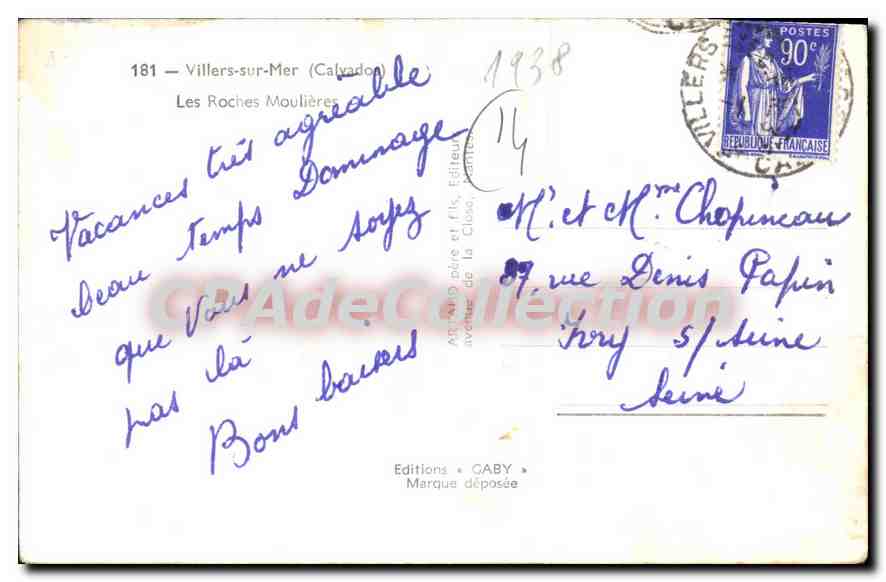 181 — Villers-sur-Mer (Calvados)
Les Roches Moulières
1938
14
POSTES
90c
REPUBLIQUE FRANÇAISE
VILLERS
CA
Vacances très agréable
beau temps Dommage
que vous ne soyez
pas là
Bons baisers
ARTAUD père et fils, Editeur
avenue de la Close, Nantes
Mr. et Mme Chopineau
37, rue Denis Papin
Ivry s/ Seine
Seine
CPAdeCollection
Editions « GABY »
Marque déposée